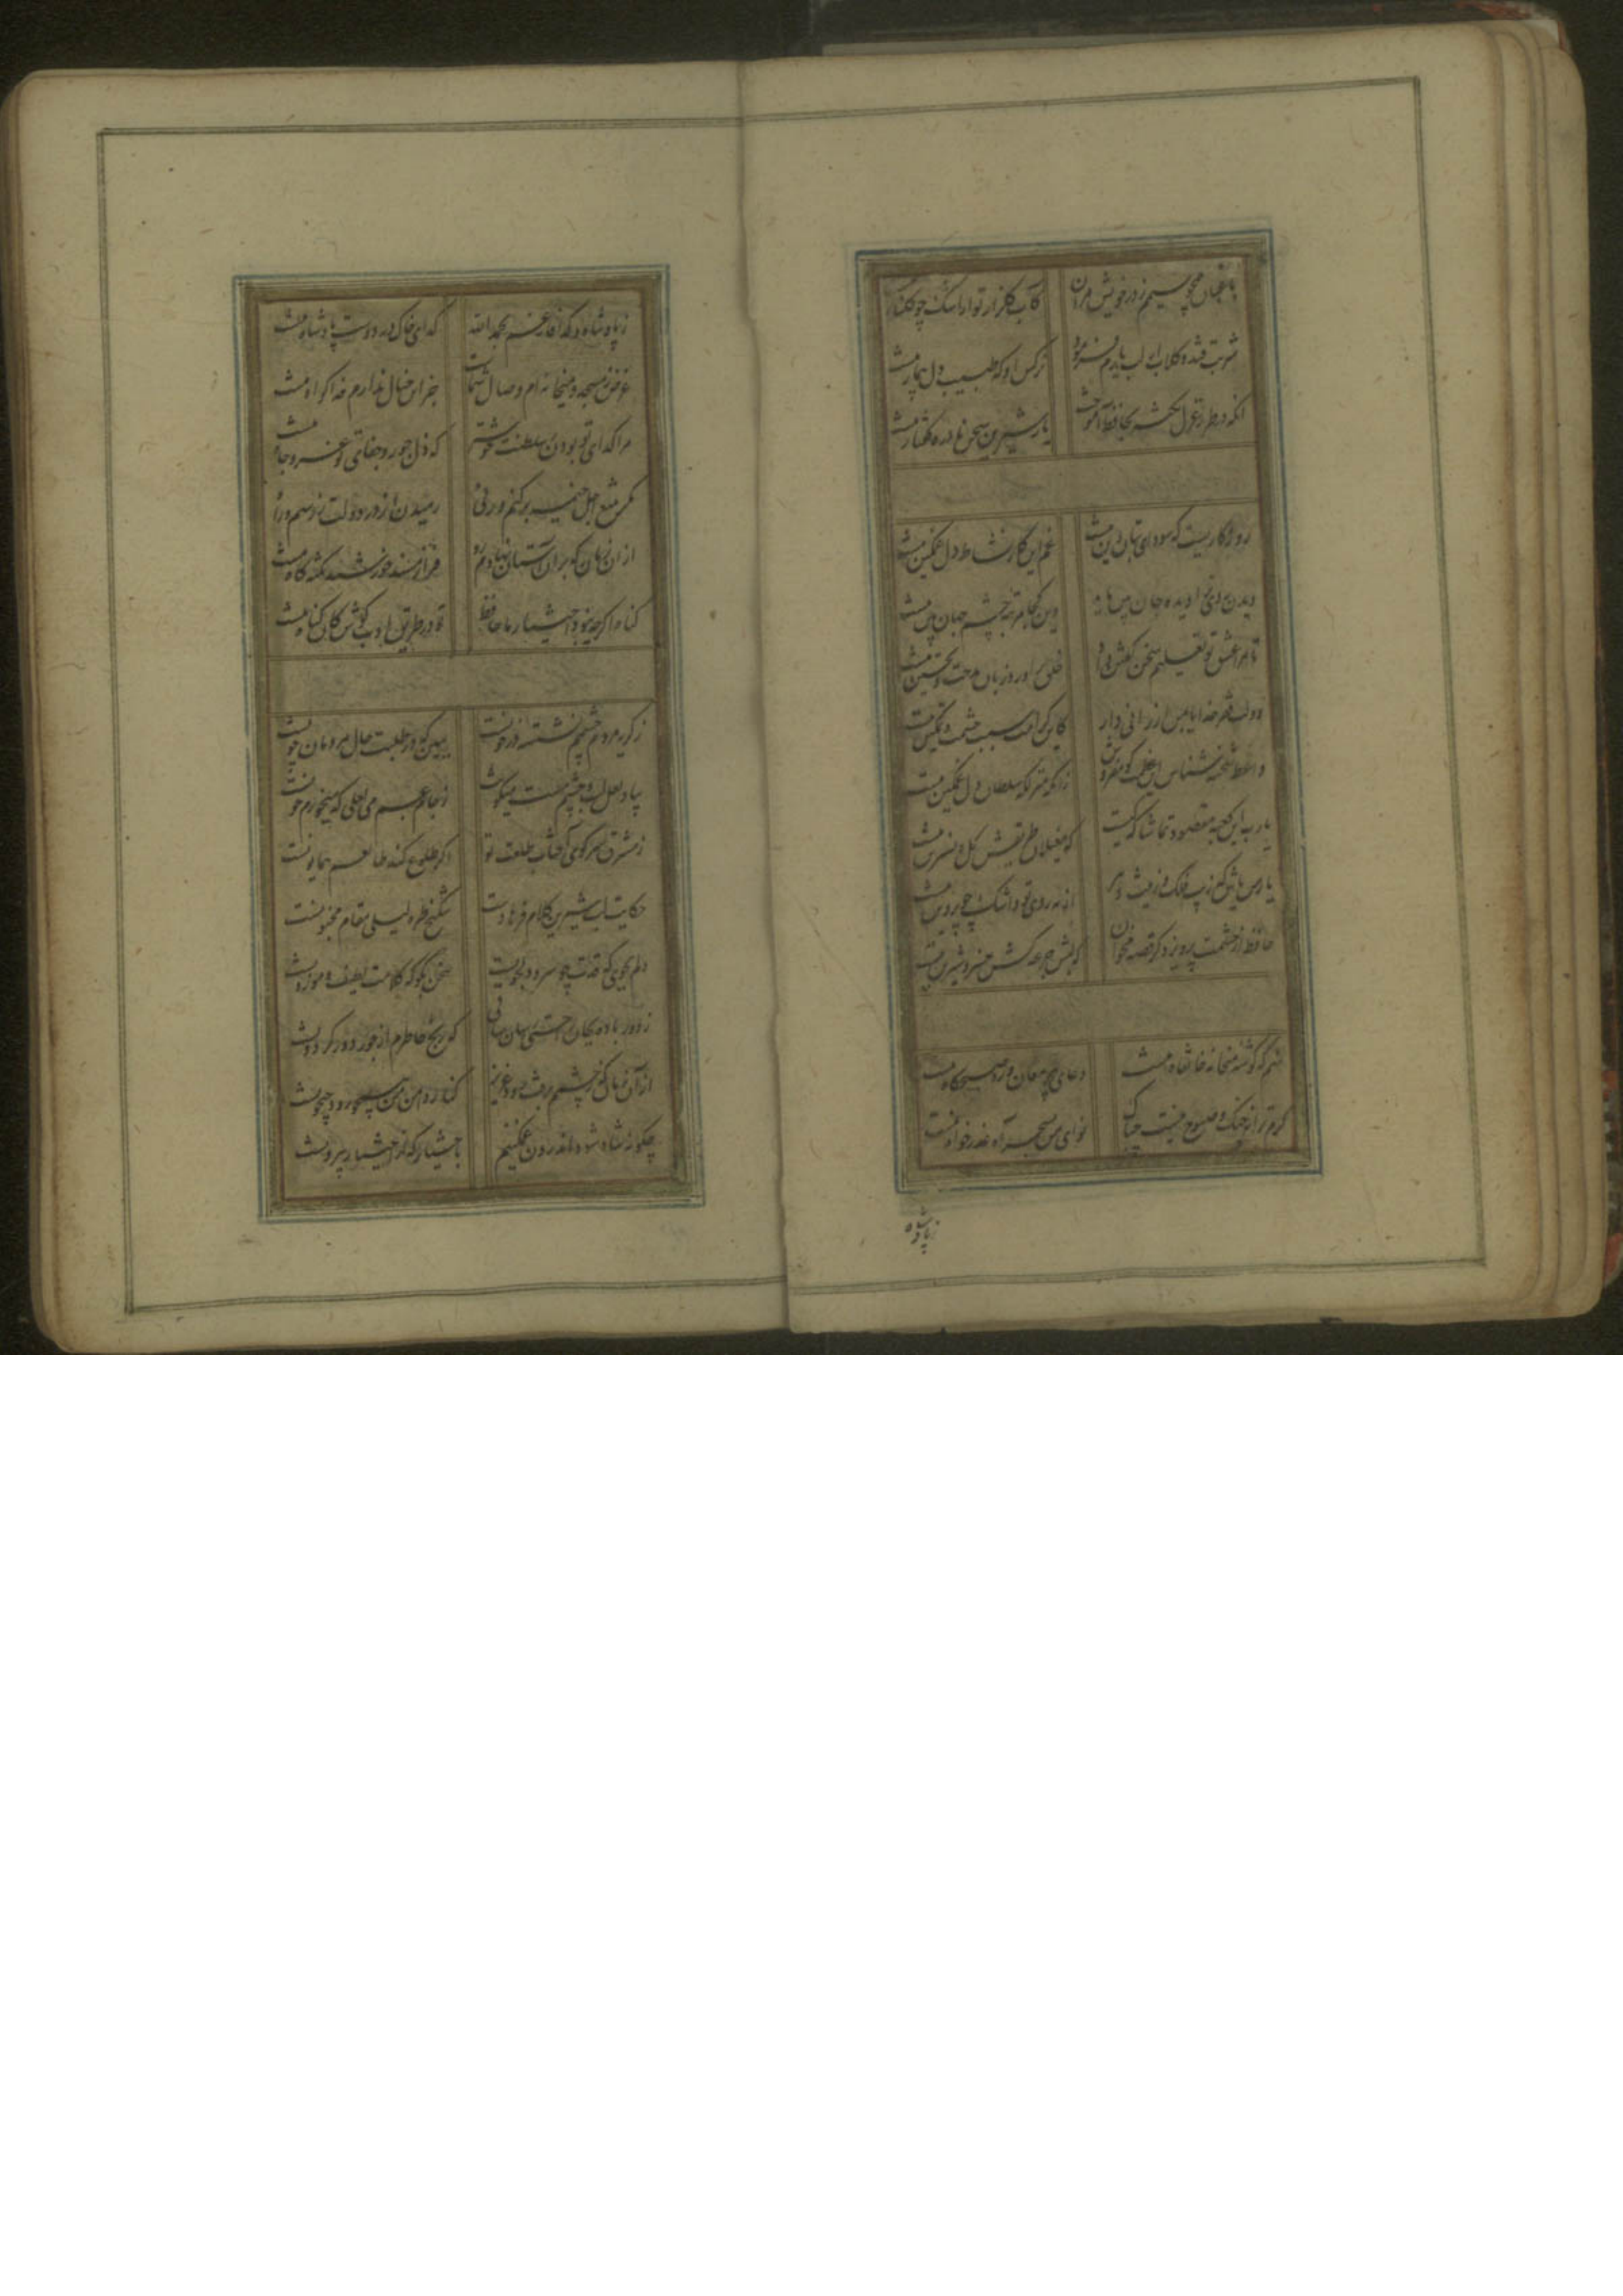 باغبان همچو نسیمم ز در خویش مران کآب گلزار تو از اشک چو گلنار منست
شربت قند و گلاب از لب یارم فرمود نرگس او که طبیب دل بیمار منست
آنکه در طرز غزل نکته بحافظ آموخت یار شیرین سخن نادره گفتار منست
روزگاریست که سودای بتان دین منست غم این کار نشاط دل غمگین منست
دیدن روی ترا دیده جان بین باید وین کجا مرتبه چشم جهان بین منست
تا مرا عشق تو تعلیم سخن گفتن داد خلق را ورد زبان مدحت و تحسین منست
دولت فقر خدایا بمن ارزانی دار کاین کرامت سبب حشمت و تمکین منست
واعظ شحنه شناس این عظمت گو مفروش زانکه منزلگه سلطان دل مسکین منست
یا رب این کعبه مقصود تماشاگه کیست که مغیلان طریقش گل و نسرین منست
یار من باش که زیب فلک و زینت دهر از مه روی تو و اشک چو پروین منست
حافظ از حشمت پرویز دگر قصه مخوان که لبش جرعه کش خسرو شیرین منست
منم که گوشه میخانه خانقاه منست دعای پیر مغان ورد صبحگاه منست
گرم ترانه چنگ و صبوح نیست چه باک نوای من بسحر آه عذرخواه منست
ز پادشاه
ز پادشاه و گدا فارغم بحمدالله گدای خاک در دوست پادشاه منست
غرض ز مسجد و میخانه ام وصال شماست جز این خیال ندارم خدا گواه منست
مرا گدای تو بودن ز سلطنت خوشتر که ذل جور و جفای تو عز و جاه منست
مگر بتیغ اجل خیمه برکنم ورنی رمیدن از در دولت نه رسم و راه
از آن زمان که بر آن آستان نهادم رو فراز مسند خورشید تکیه گاه منست
گناه اگر چه نبود اختیار ما حافظ تو در طریق ادب کوش گو گناه منست
ز گریه مردم چشمم نشسته در خونست ببین که در طلبت حال مردمان چونست
بیاد لعل لب و چشم مست میگونت ز جام غم می لعلی که میخورم خونست
ز مشرق سر کوی آفتاب طلعت تو اگر طلوع کند طالعم همایونست
حکایت لب شیرین کلام فرهادست شکنج طره لیلی مقام مجنونست
دلم بجوی که قدت چو سرو دلجویست سخن بگو که کلامت لطیف و موزونست
ز دور باده بجان راحتی رسان ساقی که رنج خاطرم از جور دور گردونست
از آن زمان که ز چشمم برفت رود عزیز کنار دامن من همچو رود جیحونست
چگونه شاد شود اندرون غمگینم باختیار که از اختیار بیرونست